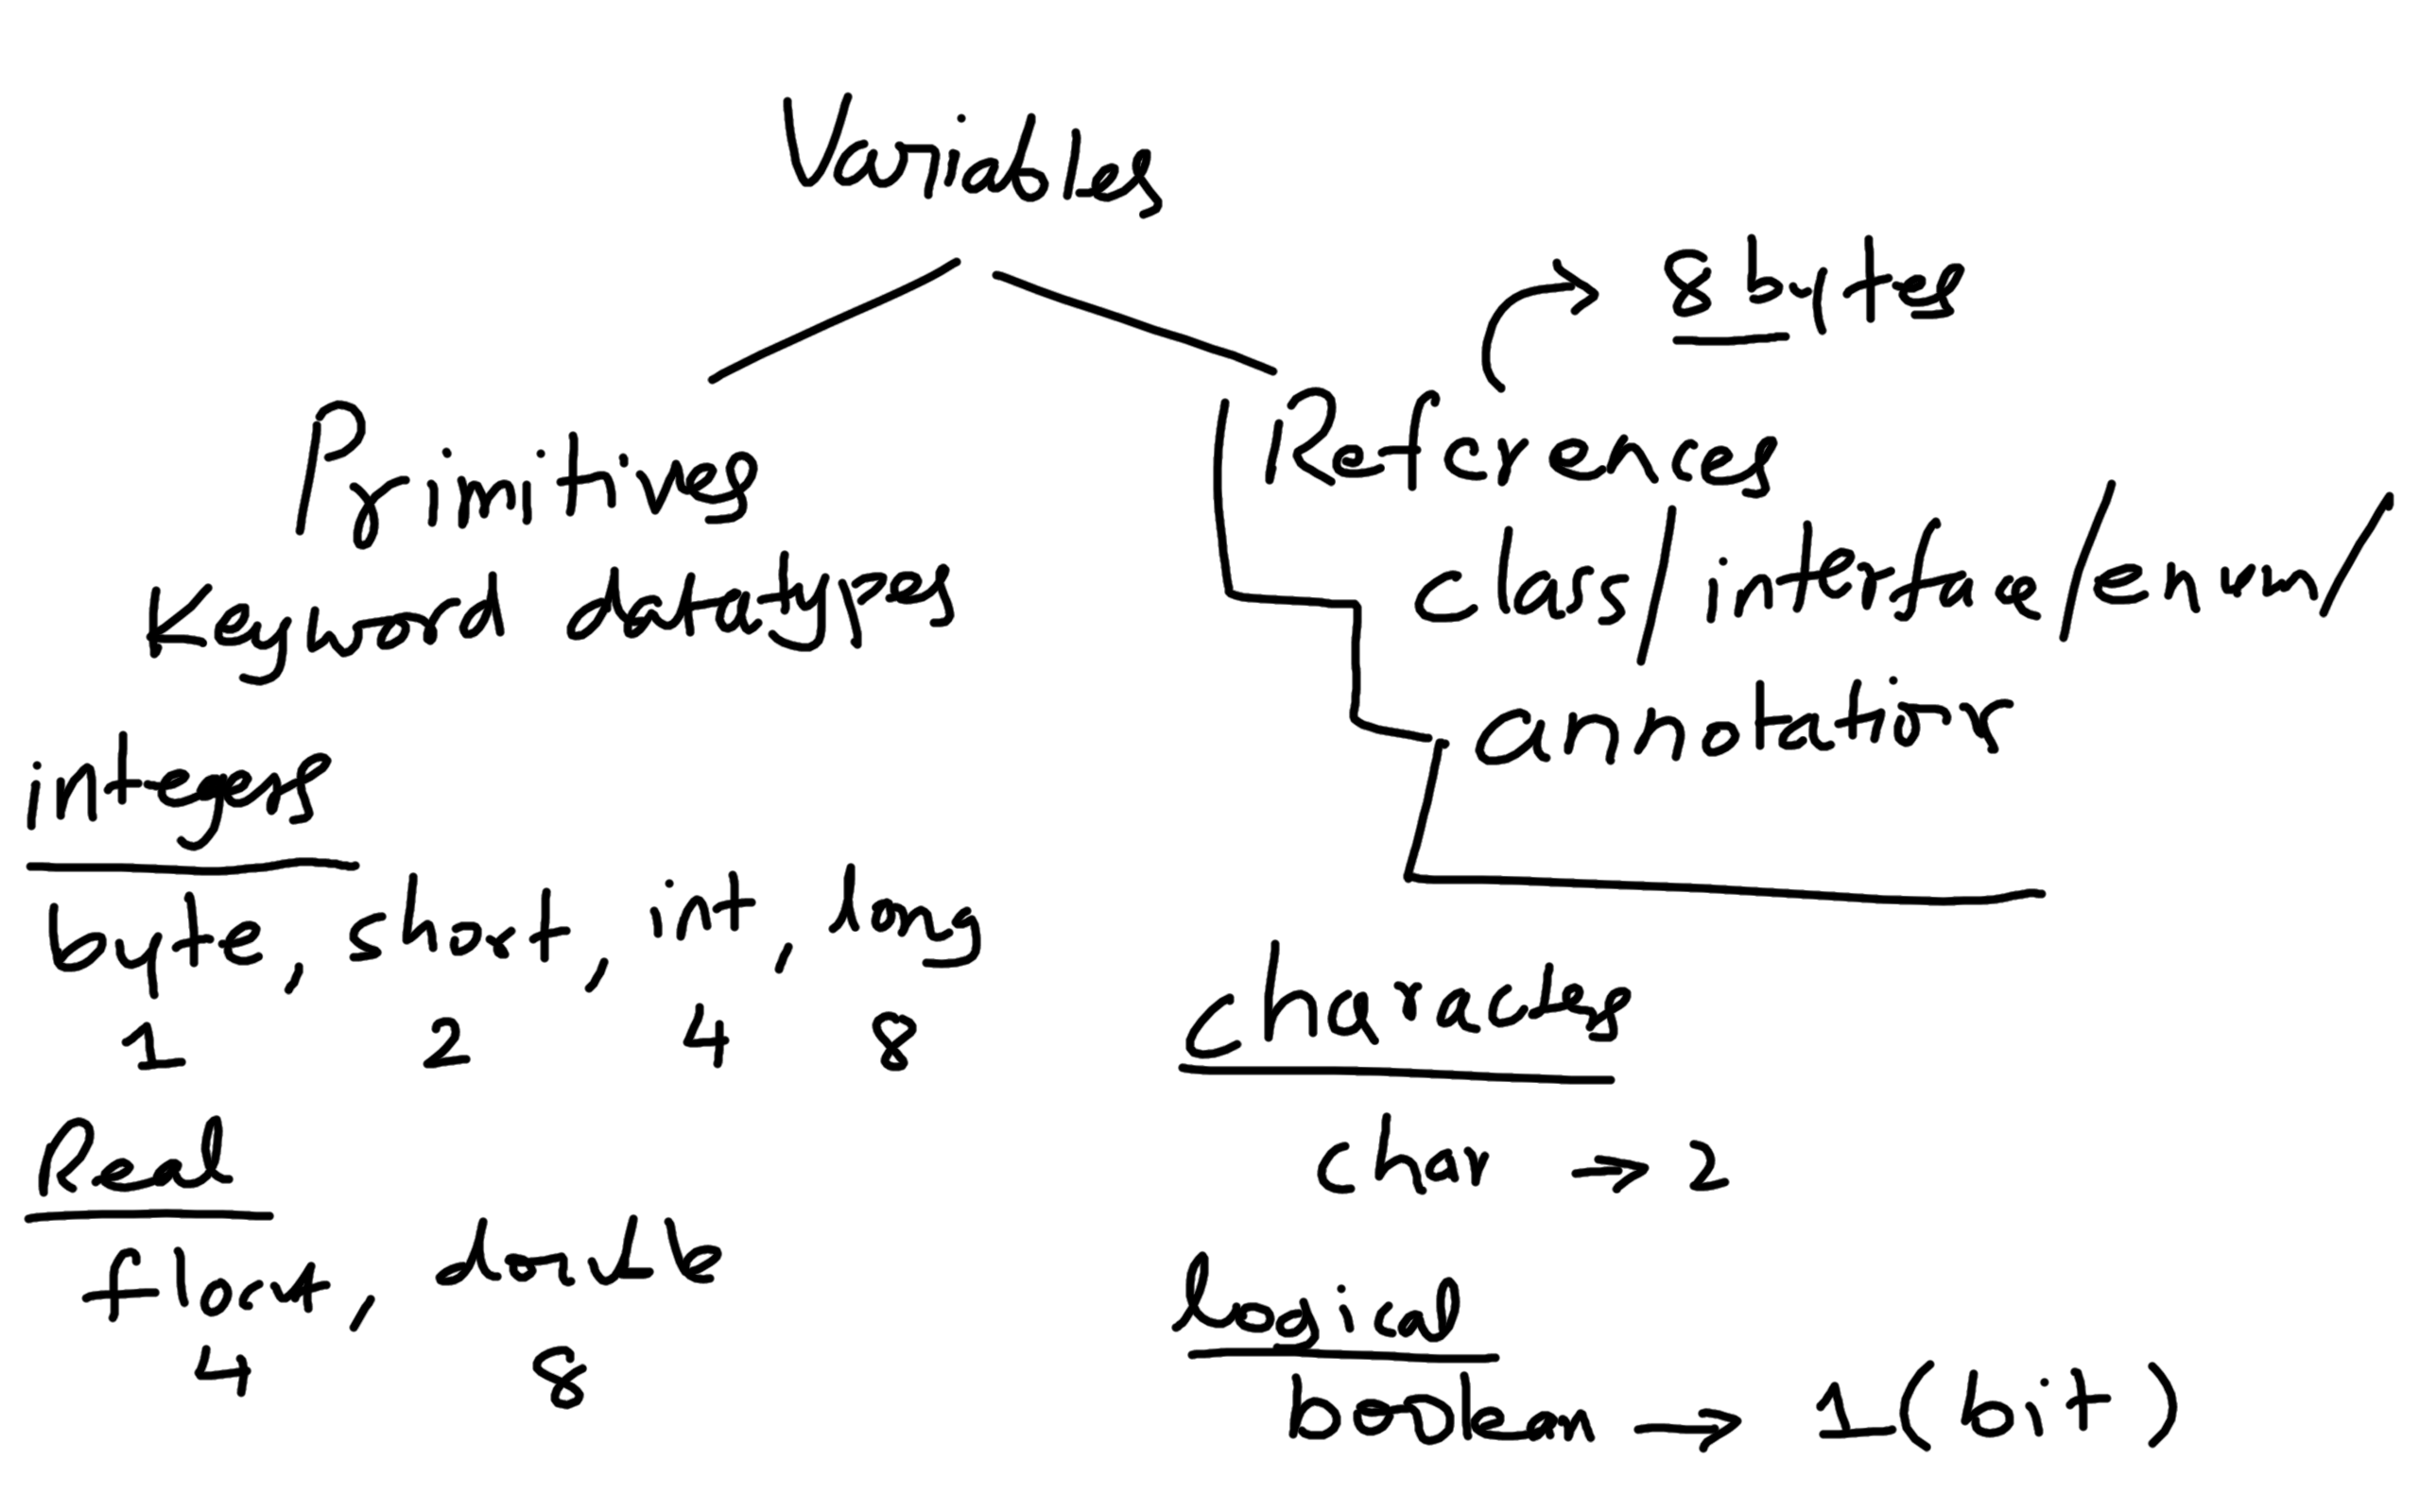 Variables
8 bytes
Primitives
References
Keyword datatypes
class/interface/enum/
annotation
integers
byte, short, int, long
1 2 4 8
Real
float, double
4 8
characters
char → 2
logical
boolean → 1(bit)